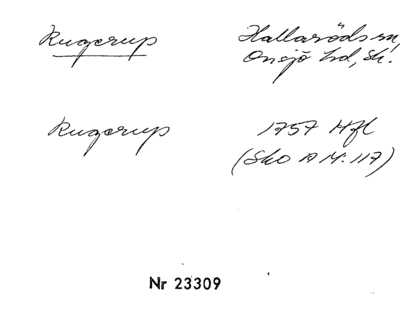 Rugerup Hallaröds sn,
Onsjö hd, Sk.
Rugerup 1757 Hfl
(Sko A IV:117)
Nr 23309